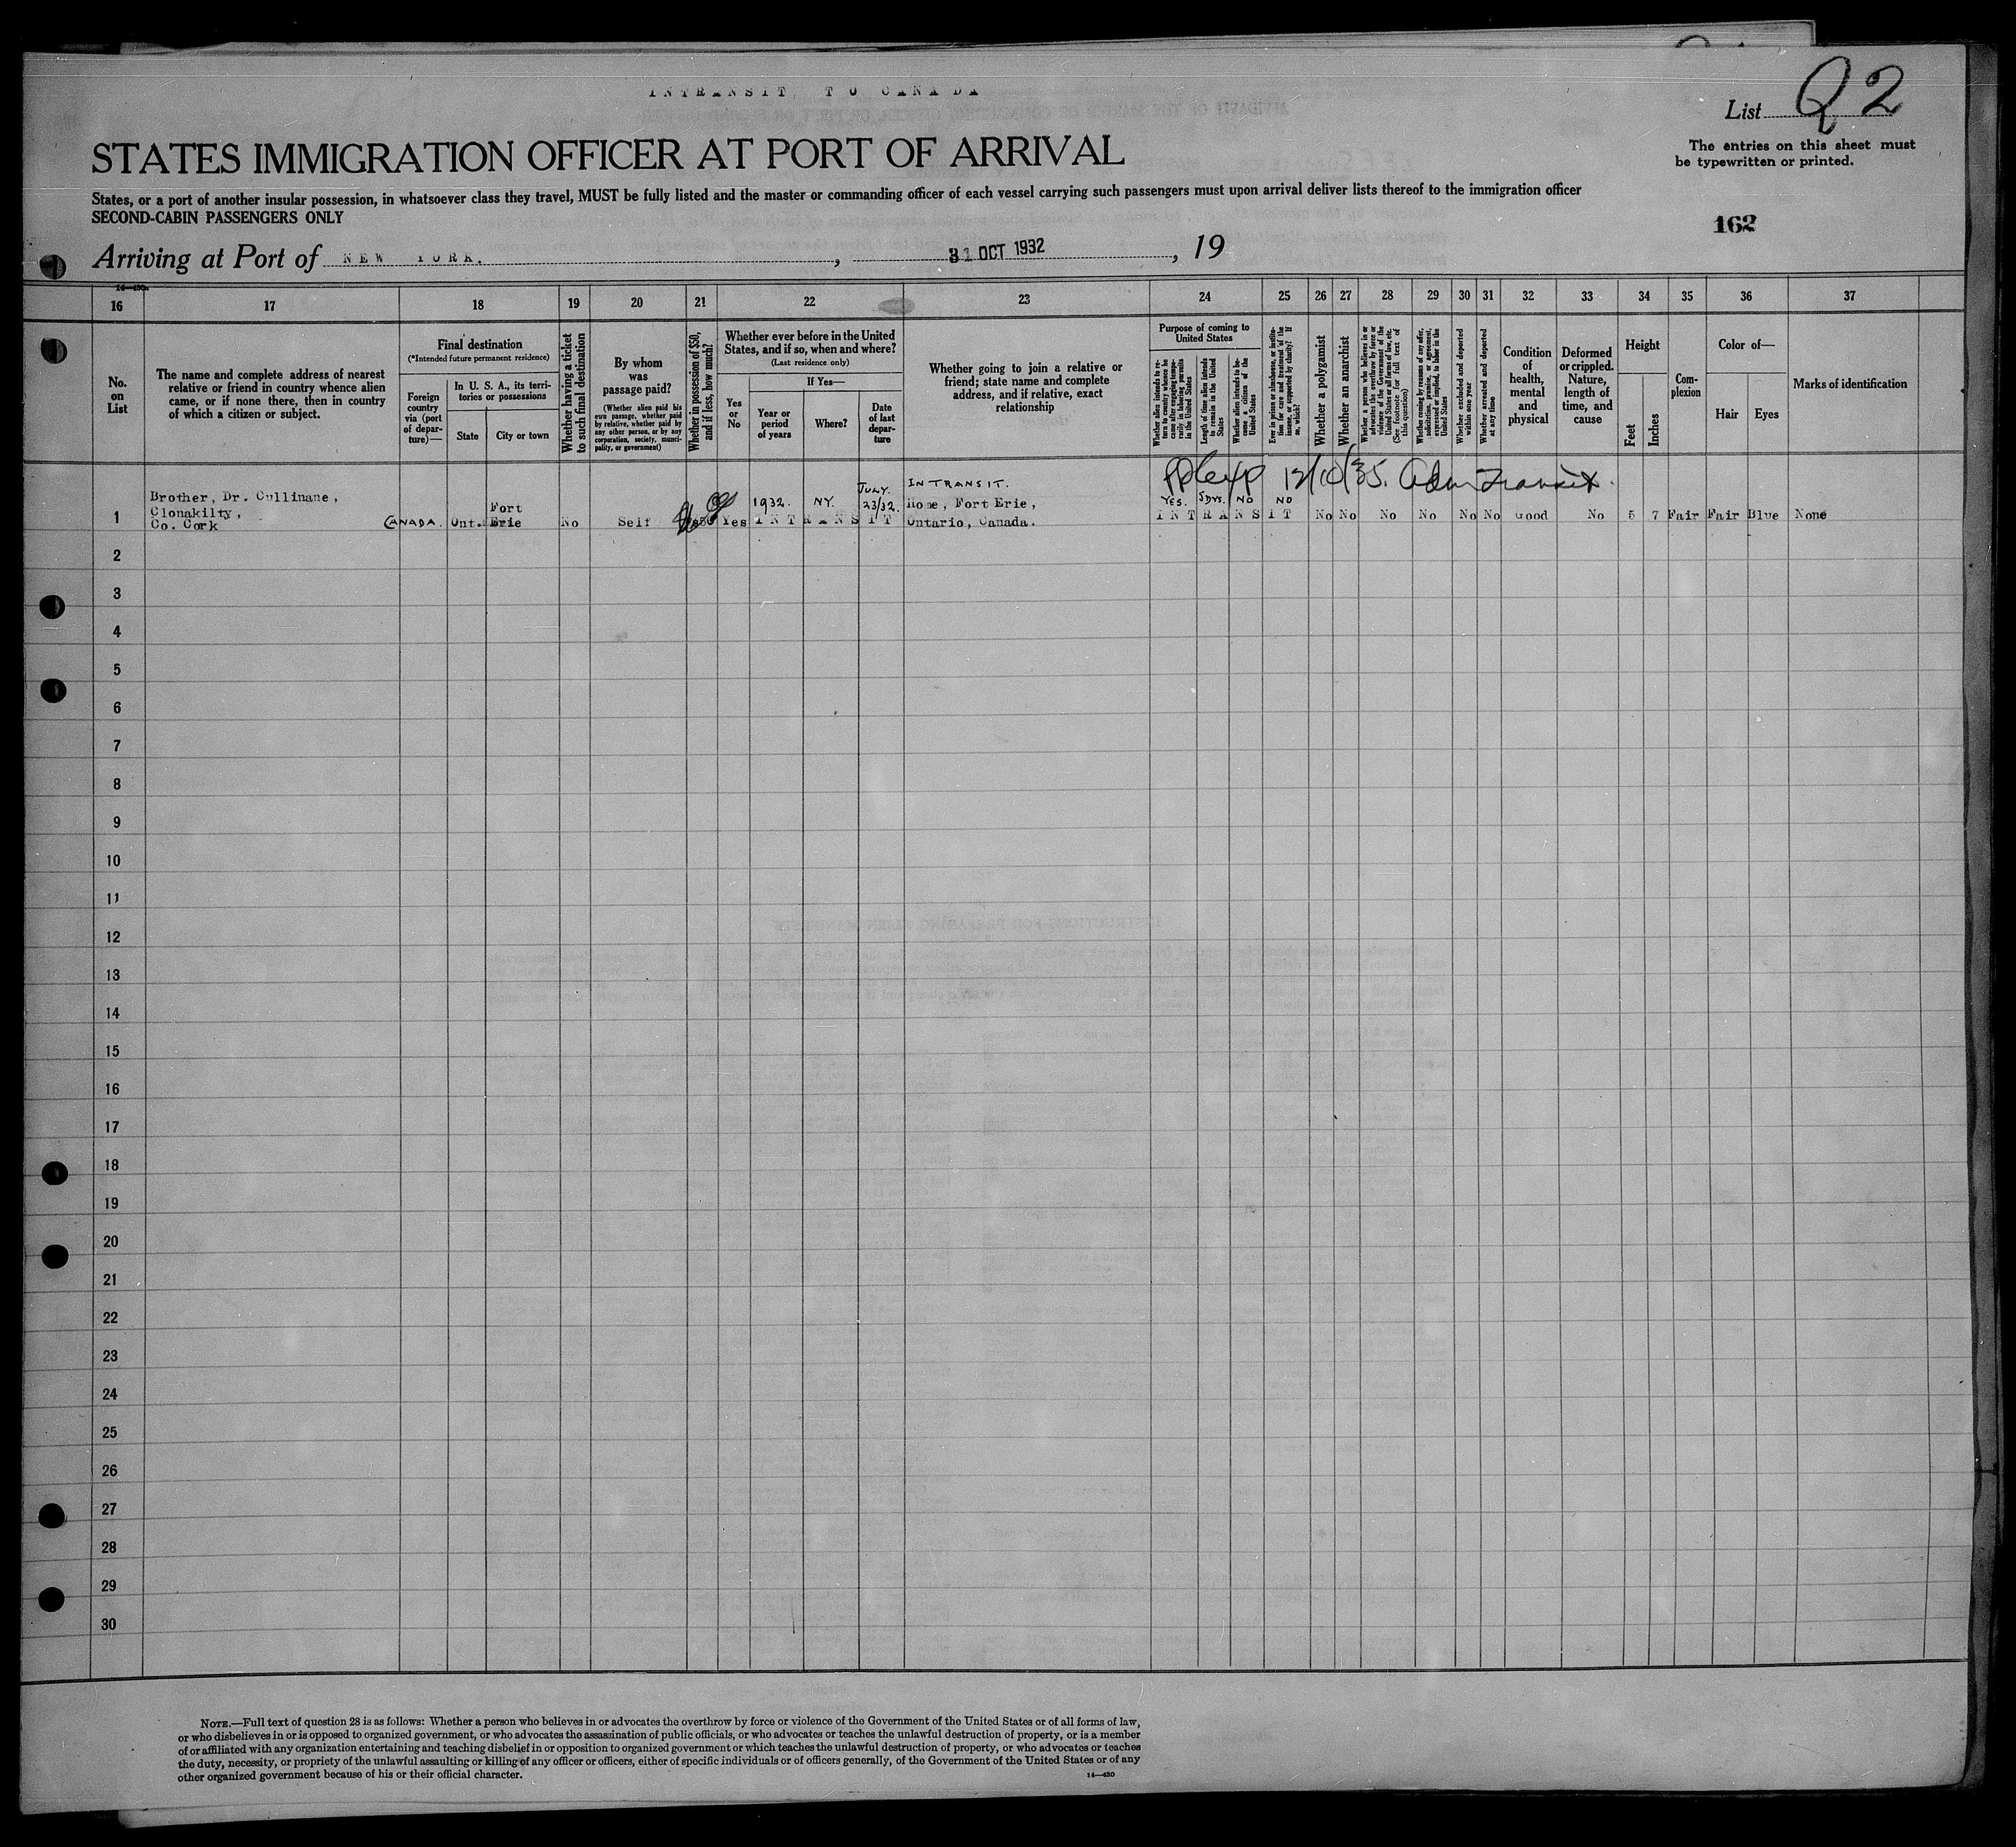 INTRANSIT TO CANADA
List Q2
STATES IMMIGRATION OFFICER AT PORT OF ARRIVAL
The entries on this sheet must
be typewritten or printed.
States, or a port of another insular possession, in whatsoever class they travel, MUST be fully listed and the master or commanding officer of each vessel carrying such passengers must upon arrival deliver lists thereof to the immigration officer
SECOND-CABIN PASSENGERS ONLY
162
Arriving at Port of NEW YORK. , 31 OCT 1932 , 19
16 17 18 19 20 21 22 23 24 25 26 27 28 29 30 31 32 33 34 35 36 37
No.
on
List
The name and complete address of nearest
relative or friend in country whence alien
came, or if none there, then in country
of which a citizen or subject.
Final destination
(*Intended future permanent residence)
Foreign
country
via (port
of depar-
ture)—
In U. S. A., its terri-
tories or possessions
State
City or town
Whether having a ticket
to such final destination
By whom
was
passage paid?
(Whether alien paid his
own passage, whether paid
by relative, whether paid by
any other person, or by any
corporation, society, munici-
pality, or government)
Whether in possession of $50,
and if less, how much?
Whether ever before in the United
States, and if so, when and where?
(Last residence only)
Yes
or
No
If Yes—
Year or
period
of years
Where?
Date
of last
depar-
ture
Whether going to join a relative or
friend; state name and complete
address, and if relative, exact
relationship
Purpose of coming to
United States
Whether alien intends to re-
turn to country whence he
came after engaging tempo-
rarily in laboring pursuits
in the United States
Length of time alien intends
to remain in the United
States
Whether alien intends to be-
come a citizen of the
United States
Ever in prison or almshouse, or institu-
tion for care and treatment of the
insane, or supported by charity? If
so, which?
Whether a polygamist
Whether an anarchist
Whether a person who believes in or
advocates the overthrow by force or
violence of the Government of the
United States or all forms of law, etc.
(See footnote for full text of
this question)
Whether coming by reasons of any offer,
solicitation, promise, or agreement,
expressed or implied, to labor in the
United States
Whether excluded and deported
within one year
Whether arrested and deported
at any time
Condition
of
health,
mental
and
physical
Deformed
or crippled.
Nature,
length of
time, and
cause
Height
Feet
Inches
Com-
plexion
Color of—
Hair
Eyes
Marks of identification
12/10/35. Adm Transit.
1
Brother, Dr. Cullinane,
Clonakilty,
Co. Cork
CANADA. Ont.
Fort
Erie
No
Self
Yes
1932.
NY.
JULY.
23/32.
INTRANSIT
IN TRANSIT.
Home, Fort Erie,
Ontario, Canada.
YES. 5DYS. NO NO
INTRANSIT
No No No No No No Good No 5 7 Fair Fair Blue None
2
3
4
5
6
7
8
9
10
11
12
13
14
15
16
17
18
19
20
21
22
23
24
25
26
27
28
29
30
NOTE.—Full text of question 28 is as follows: Whether a person who believes in or advocates the overthrow by force or violence of the Government of the United States or of all forms of law,
or who disbelieves in or is opposed to organized government, or who advocates the assassination of public officials, or who advocates or teaches the unlawful destruction of property, or is a member
of or affiliated with any organization entertaining and teaching disbelief in or opposition to organized government or which teaches the unlawful destruction of property, or who advocates or teaches
the duty, necessity, or propriety of the unlawful assaulting or killing of any officer or officers, either of specific individuals or of officers generally, of the Government of the United States or of any
other organized government because of his or their official character.
14—430